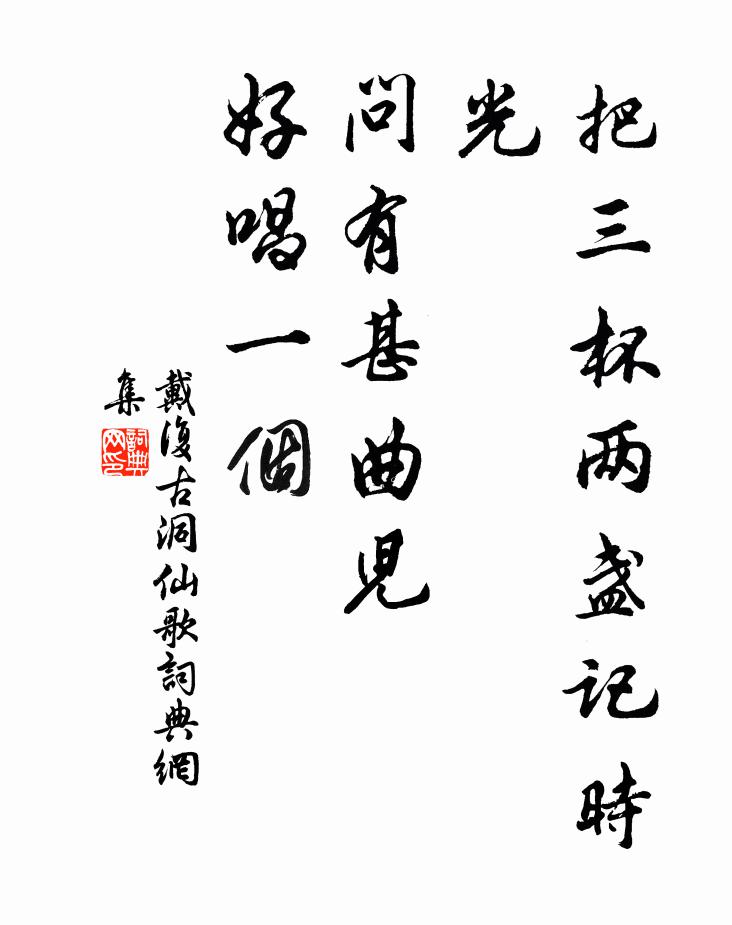 把三杯两盏記時
光
問有甚曲児
好唱一個
戴復古洞仙歌詞典網
集
詞典
网印